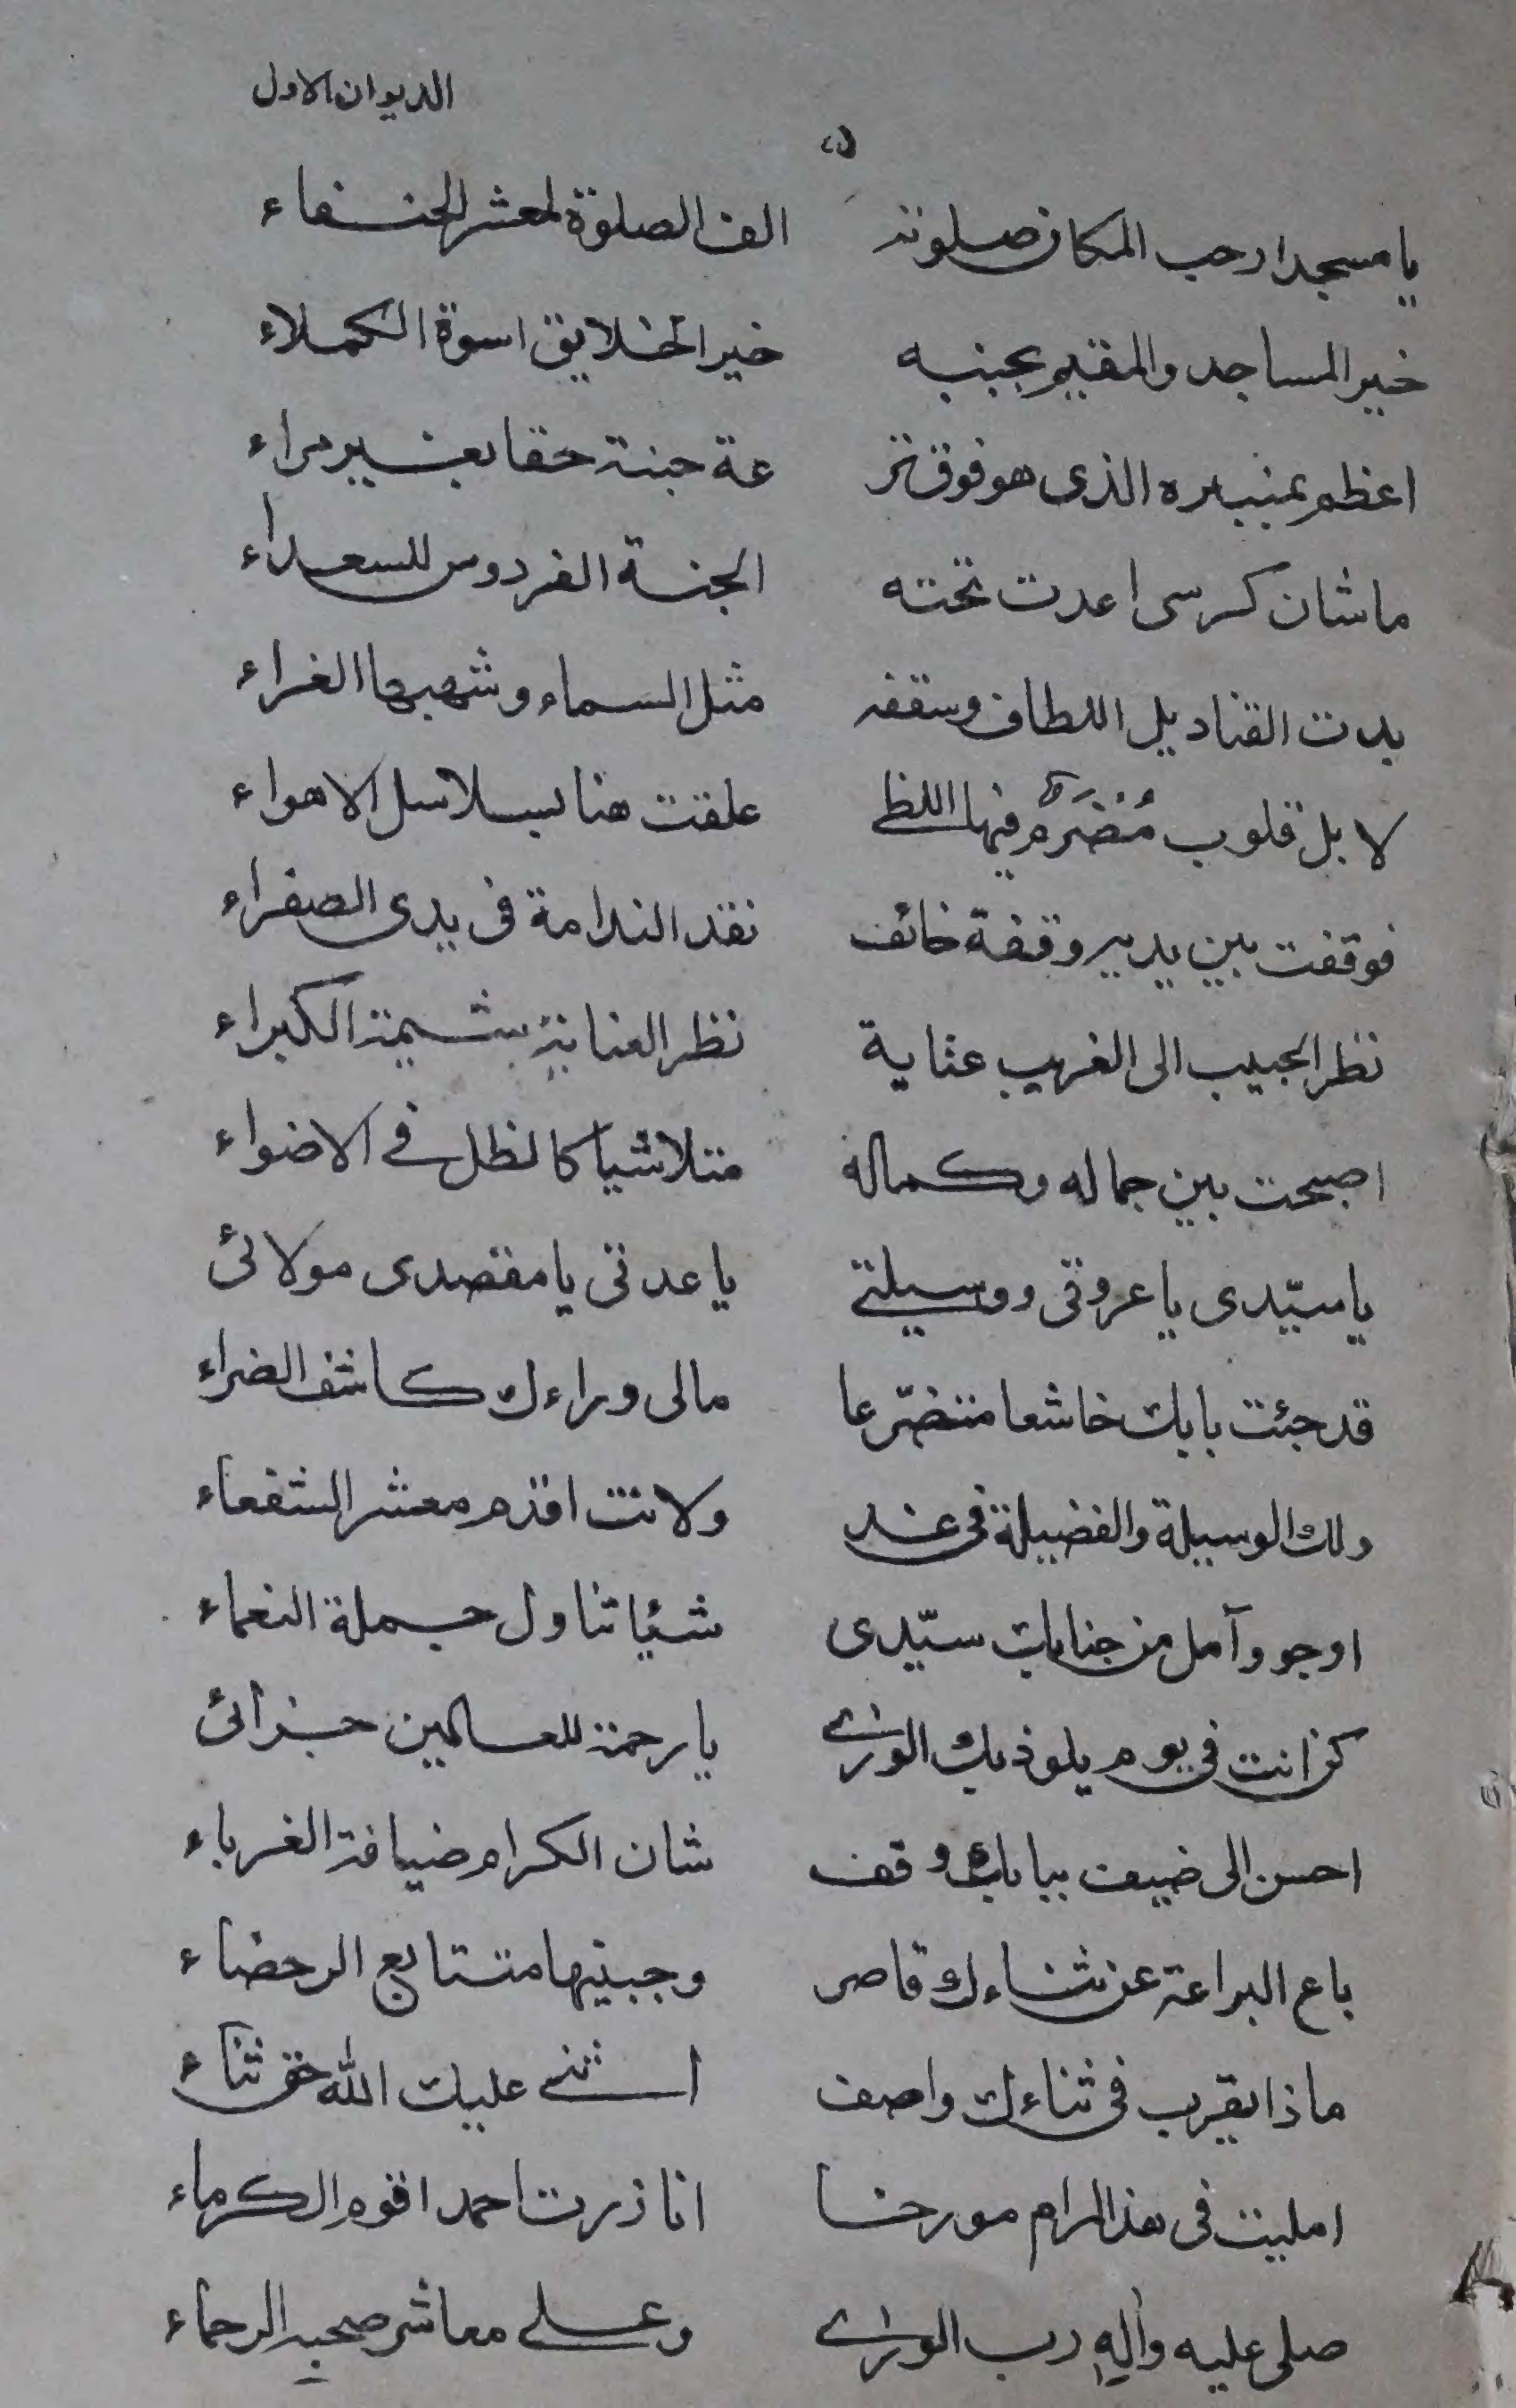 الديوان الاول
٥
يا مسجدا رحب المكان صلوته الف الصلوة لمعشر الحنفاء
خير المساجد والمقيم بجنبه خير الخلايق اسوة الكملاء
اعظم بمنبره الذى هو فوق تر عة جنة حقا بغير مراء
ما شان كرسى اعدت تحته الجنة الفردوس للسعداء
بدت القناديل اللطاف وسقفه مثل السماء وشهبها الغراء
لا بل قلوب مُضرَم فيها اللظى علقت هنا بسلاسل الاهواء
فوقفت بين يديه وقفة خائف نقد الندامة فى يدى الصفراء
نظر الحبيب الى الغريب عناية نظر العناية شيمة الكبراء
اصبحت بين جماله وكماله متلاشيا كالظل فى الاضواء
يا سيّدى يا عروتى ووسيلتى يا عدتى يا مقصدى مولائى
قد جئت بابك خاشعا متضرّعا مالى وراءك كاشف الضراء
ولك الوسيلة والفضيلة فى غد ولانت اقدم معشر الشفعاء
ارجو وآمل من جنابك سيّدى شيئا تناول جملة النعماء
كن انت فى يوم يلوذ بك الورى يا رحمة للعالمين جزائى
احسن الى ضيف ببابك وقف شان الكرام ضيافة الغرباء
باع البراعة عن ثناءك قاصر وجبينها متتابع الرحضاء
ماذا يقرب فى ثناءك واصف اثنى عليك الله حق ثناء
امليت فى هذا المرام مورخا انا زرت احمد اقوم الكرماء
صلى عليه وآله رب الورى وعلى معاشر صحبه الرحماء